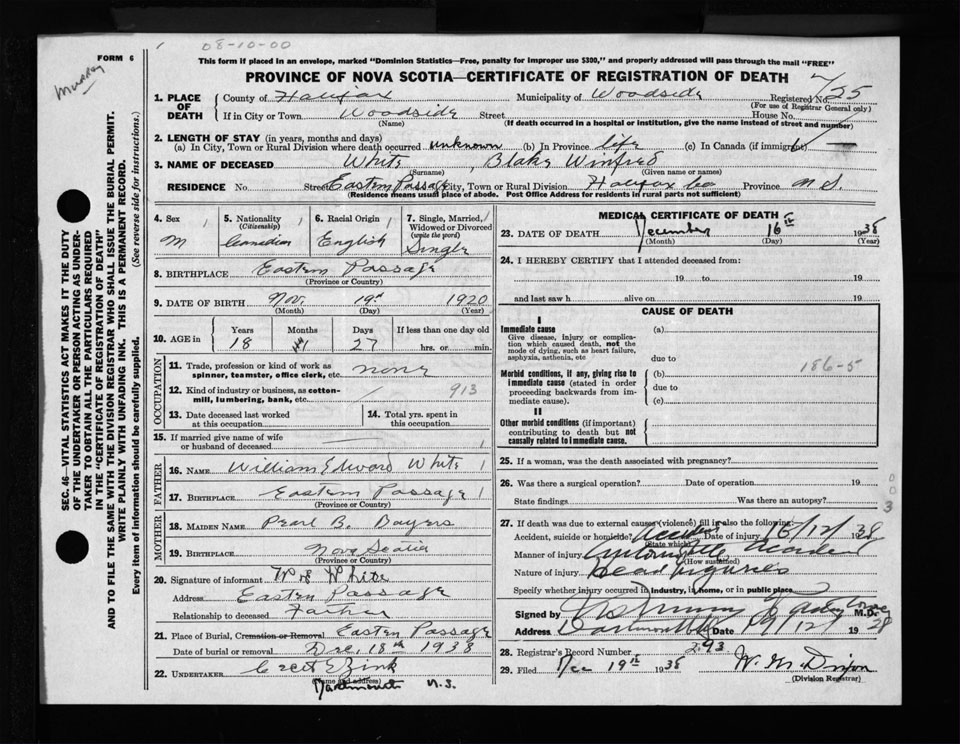 08-10-00
FORM 6
Murray
This form if placed in an envelope, marked "Dominion Statistics—Free, penalty for improper use $300," and properly addressed will pass through the mail "FREE"
PROVINCE OF NOVA SCOTIA—CERTIFICATE OF REGISTRATION OF DEATH
1. PLACE OF DEATH
County of Halifax Municipality of Woodside Registered No. 725
(For use of Registrar General only)
If in City or Town Woodside Street House No.
(Name) (If death occurred in a hospital or institution, give the name instead of street and number)
2. LENGTH OF STAY (in years, months and days)
(a) In City, Town or Rural Division where death occurred unknown (b) In Province life (c) In Canada (if immigrant) —
3. NAME OF DECEASED White, Blake Winfred
(Surname) (Given name or names)
RESIDENCE No. Street Eastern Passage City, Town or Rural Division Halifax Co Province N S
(Residence means usual place of abode. Post Office Address for residents in rural parts not sufficient)
4. Sex M
5. Nationality (Citizenship) Canadian
6. Racial Origin English
7. Single, Married, Widowed or Divorced (write the word) Single
8. BIRTHPLACE Eastern Passage
(Province or Country)
9. DATE OF BIRTH Nov. 19th 1920
(Month) (Day) (Year)
10. AGE in Years Months Days If less than one day old
18 1 27 hrs. or min.
OCCUPATION
11. Trade, profession or kind of work as spinner, teamster, office clerk, etc. none
12. Kind of industry or business, as cotton-mill, lumbering, bank, etc. 913
13. Date deceased last worked at this occupation
14. Total yrs. spent in this occupation
15. If married give name of wife or husband of deceased
FATHER
16. NAME William Edward White
17. BIRTHPLACE Eastern Passage
(Province or Country)
MOTHER
18. MAIDEN NAME Pearl B. Bayers
19. BIRTHPLACE Nova Scotia
(Province or Country)
20. Signature of informant W E White
Address Eastern Passage
Relationship to deceased Father
21. Place of Burial, Cremation or Removal Eastern Passage
Date of burial or removal Dec. 18th 1938
22. UNDERTAKER Zink
(Name and address)
Dartmouth N.S.
MEDICAL CERTIFICATE OF DEATH
23. DATE OF DEATH December 16th 1938
(Month) (Day) (Year)
24. I HEREBY CERTIFY that I attended deceased from:
19 to 19
and last saw h alive on 19
CAUSE OF DEATH
I
Immediate cause (a)
Give disease, injury or complication which caused death, not the mode of dying, such as heart failure, asphyxia, asthenia, etc
due to
Morbid conditions, if any, giving rise to immediate cause (stated in order proceeding backwards from immediate cause).
(b) 186-5
due to
(c)
II
Other morbid conditions (if important) contributing to death but not causally related to immediate cause.
25. If a woman, was the death associated with pregnancy?
26. Was there a surgical operation? Date of operation 19
State findings Was there an autopsy?
003
27. If death was due to external causes (violence) fill in also the following:
Accident, suicide or homicide? Accident Date of injury 16/12/1938
(State which)
Manner of injury Automobile Accident
(How sustained)
Nature of injury Head injuries
Specify whether injury occurred in industry, in home, or in public place
Signed by M.D.
Address Dartmouth Date 19
28. Registrar's Record Number 293
29. Filed Dec 19th 1938 W. M. Dixon
(Division Registrar)
SEC. 46—VITAL STATISTICS ACT MAKES IT THE DUTY
OF THE UNDERTAKER OR PERSON ACTING AS UNDER-
TAKER TO OBTAIN ALL THE PARTICULARS REQUIRED
IN THE "CERTIFICATE OF REGISTRATION OF DEATH"
AND TO FILE THE SAME WITH THE DIVISION REGISTRAR WHO SHALL ISSUE THE BURIAL PERMIT.
WRITE PLAINLY WITH UNFADING INK. THIS IS A PERMANENT RECORD.
Every item of Information should be carefully supplied. (See reverse side for instructions.)